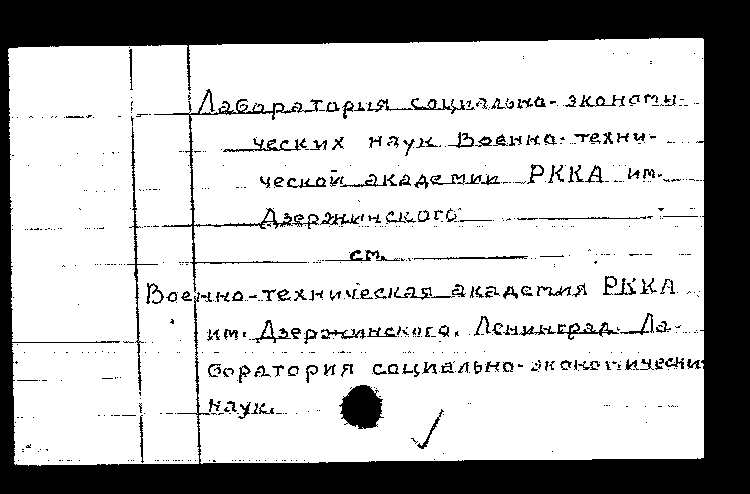 Лаборатория социально-экономи-
ческих наук Военно-техни-
ческой академии РККА им.
Дзержинского
см.
Военно-техническая академия РККА
им. Дзержинского. Ленинград. Ла-
боратория социально-экономических
наук.